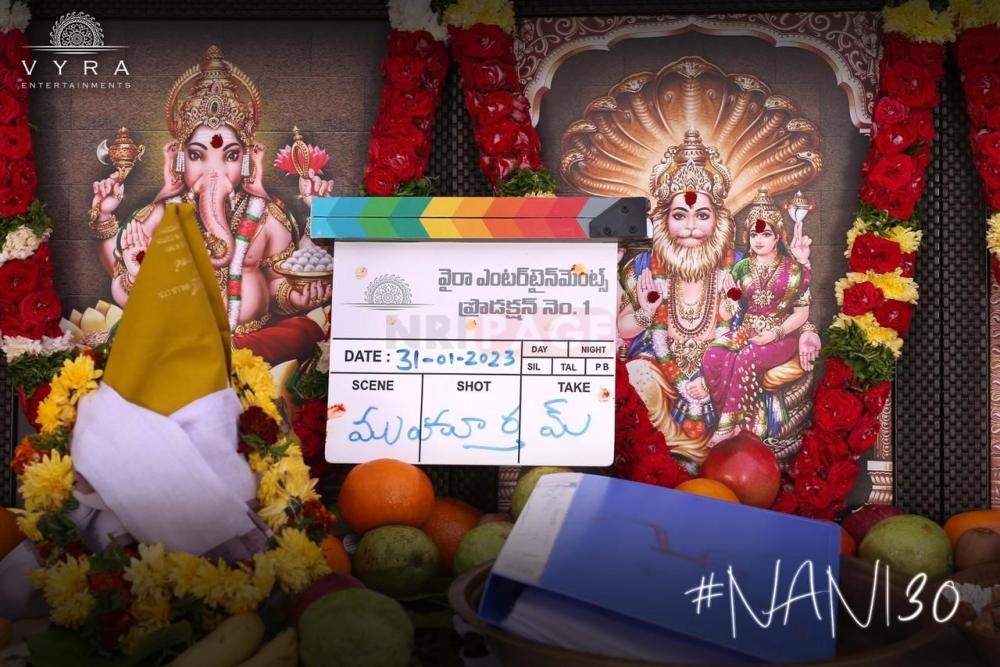 VYRA
ENTERTAINMENTS
వైరా ఎంటర్‌టైన్‌మెంట్స్
ప్రొడక్షన్ నెం. 1
NRI PAGE
DATE : 31-01-2023
DAY NIGHT
SIL TAL P B
SCENE SHOT TAKE
ముహూర్తమ్
#NANI30